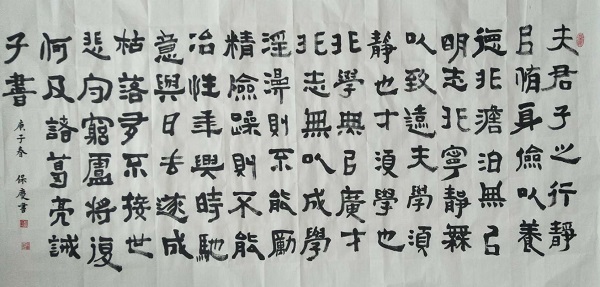 夫君子之行靜
以脩身儉以養
德非澹泊無以
明志非寧靜無
以致遠夫學須
靜也才須學也
非學無以廣才
非志無以成學
淫則不能勵
精險躁則不能
冶性年與時馳
意與日去遂成
枯落多不接世
悲守窮廬將復
何及諸葛亮誡
子書
庚子春 保慶書